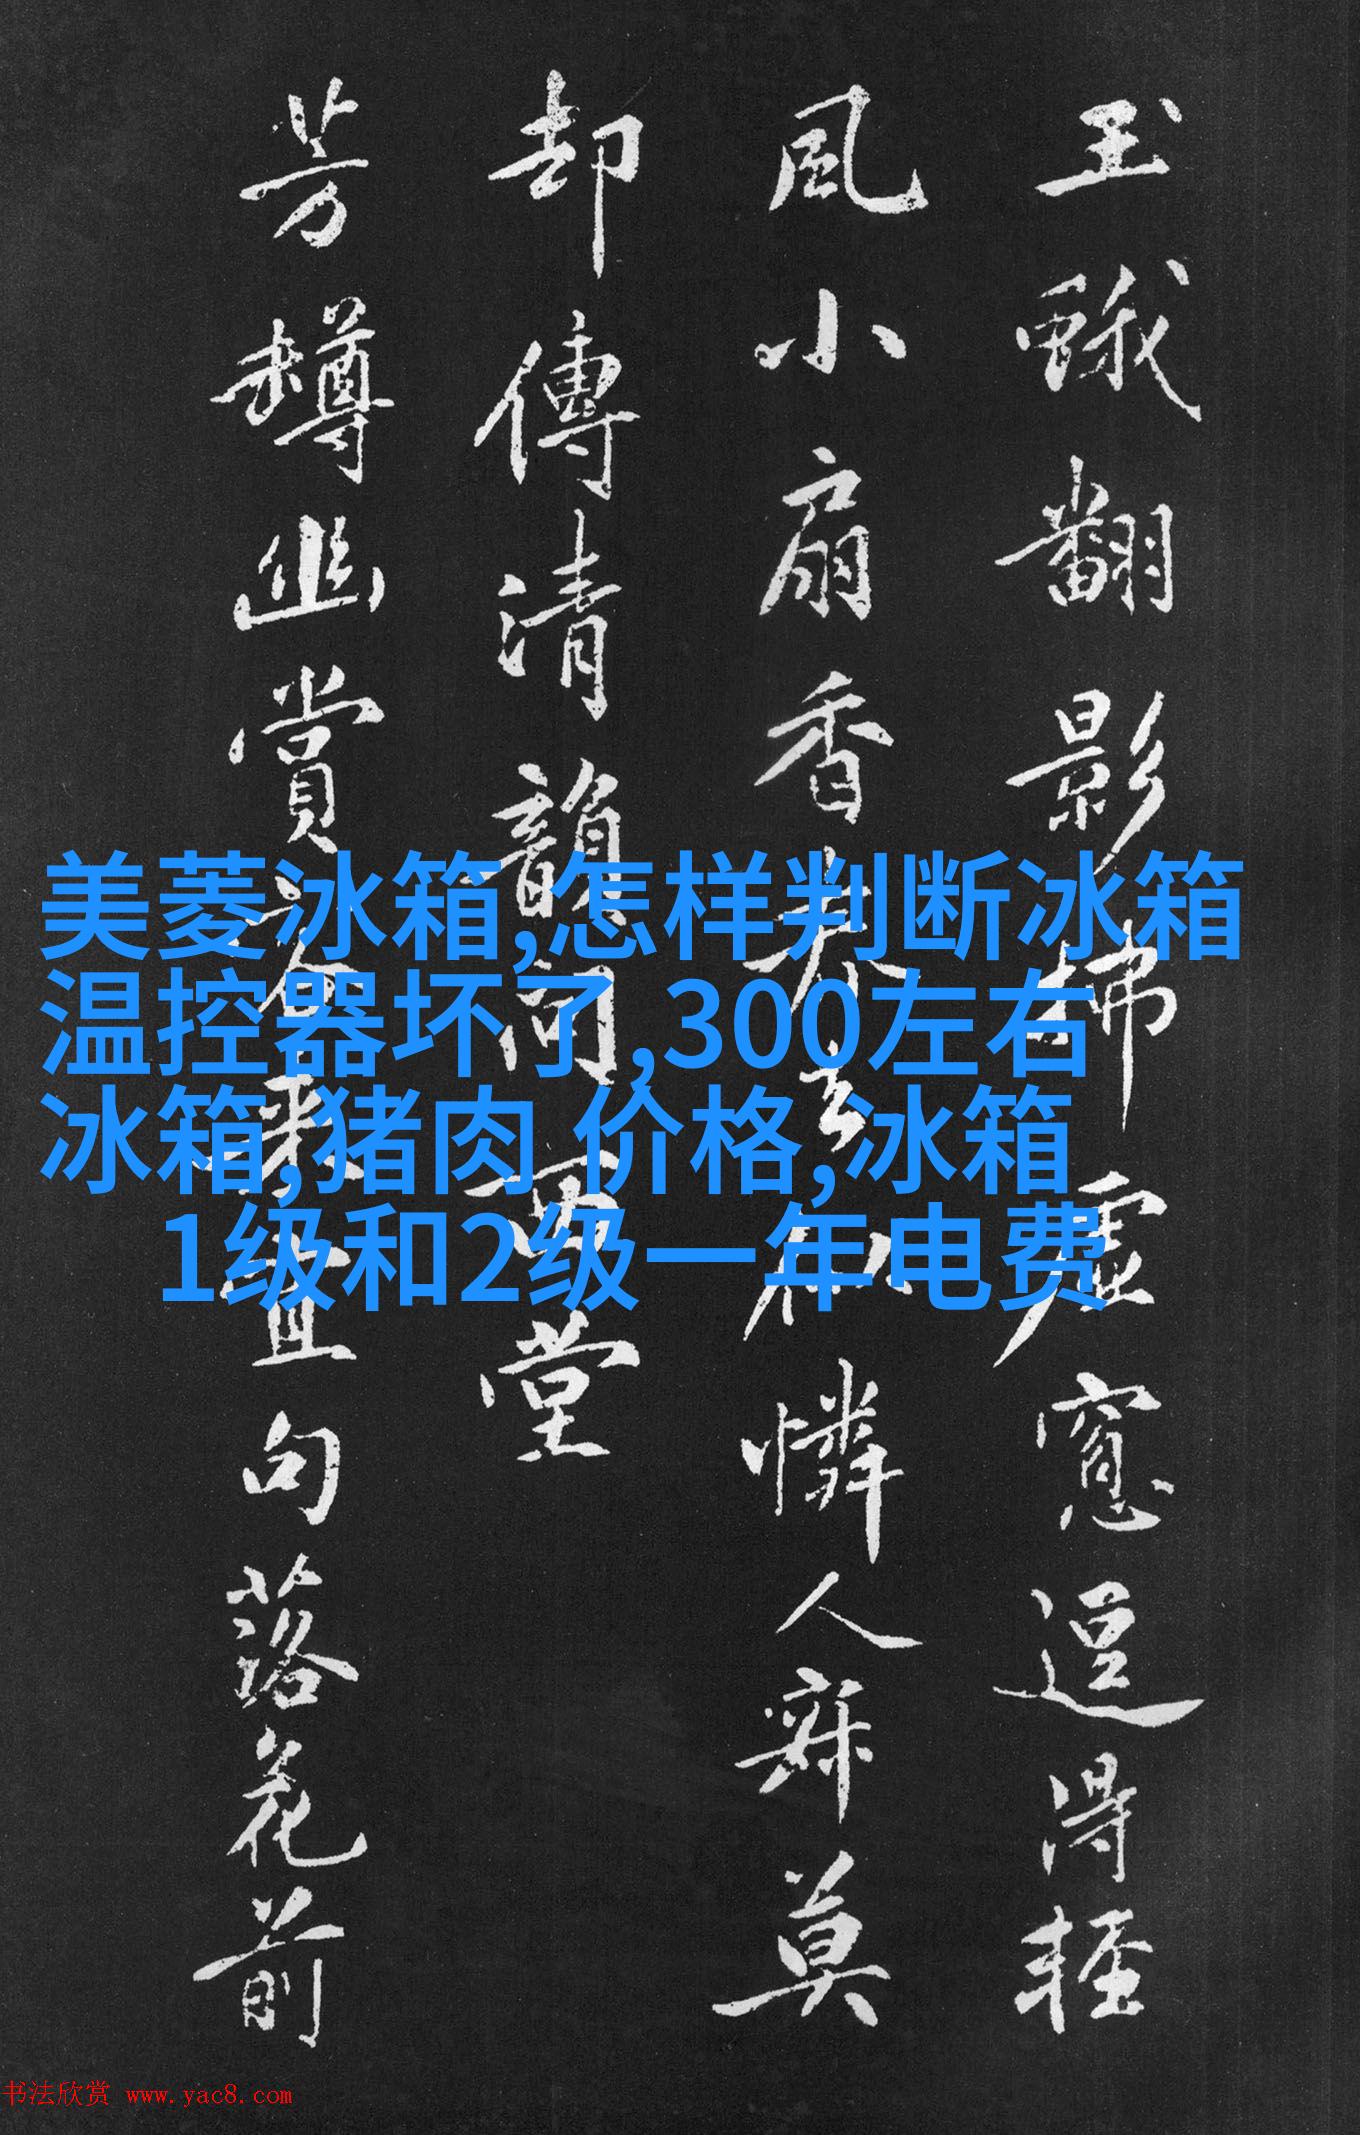 玉蛾翻影拂虛窓逗得輕
風小扇香春去憐人寂莫
却傳清韻問西堂
芳樽幽賞來宜句落花前
美菱冰箱,怎样判断冰箱
温控器坏了,300左右
冰箱,猪肉 价格,冰箱
1级和2级一年电费
书法欣赏 www.yac8.com